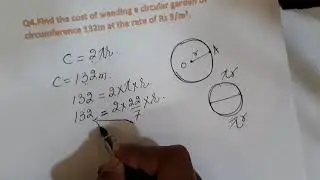 Q4.Find the cost of weeding a circular garden of
circumference 132m at the rate of Rs 3/m².
C = 2πr.
C = 132m.
132 = 2×π×r.
132 = 2×22/7×r.
r
A
O
πr
πr